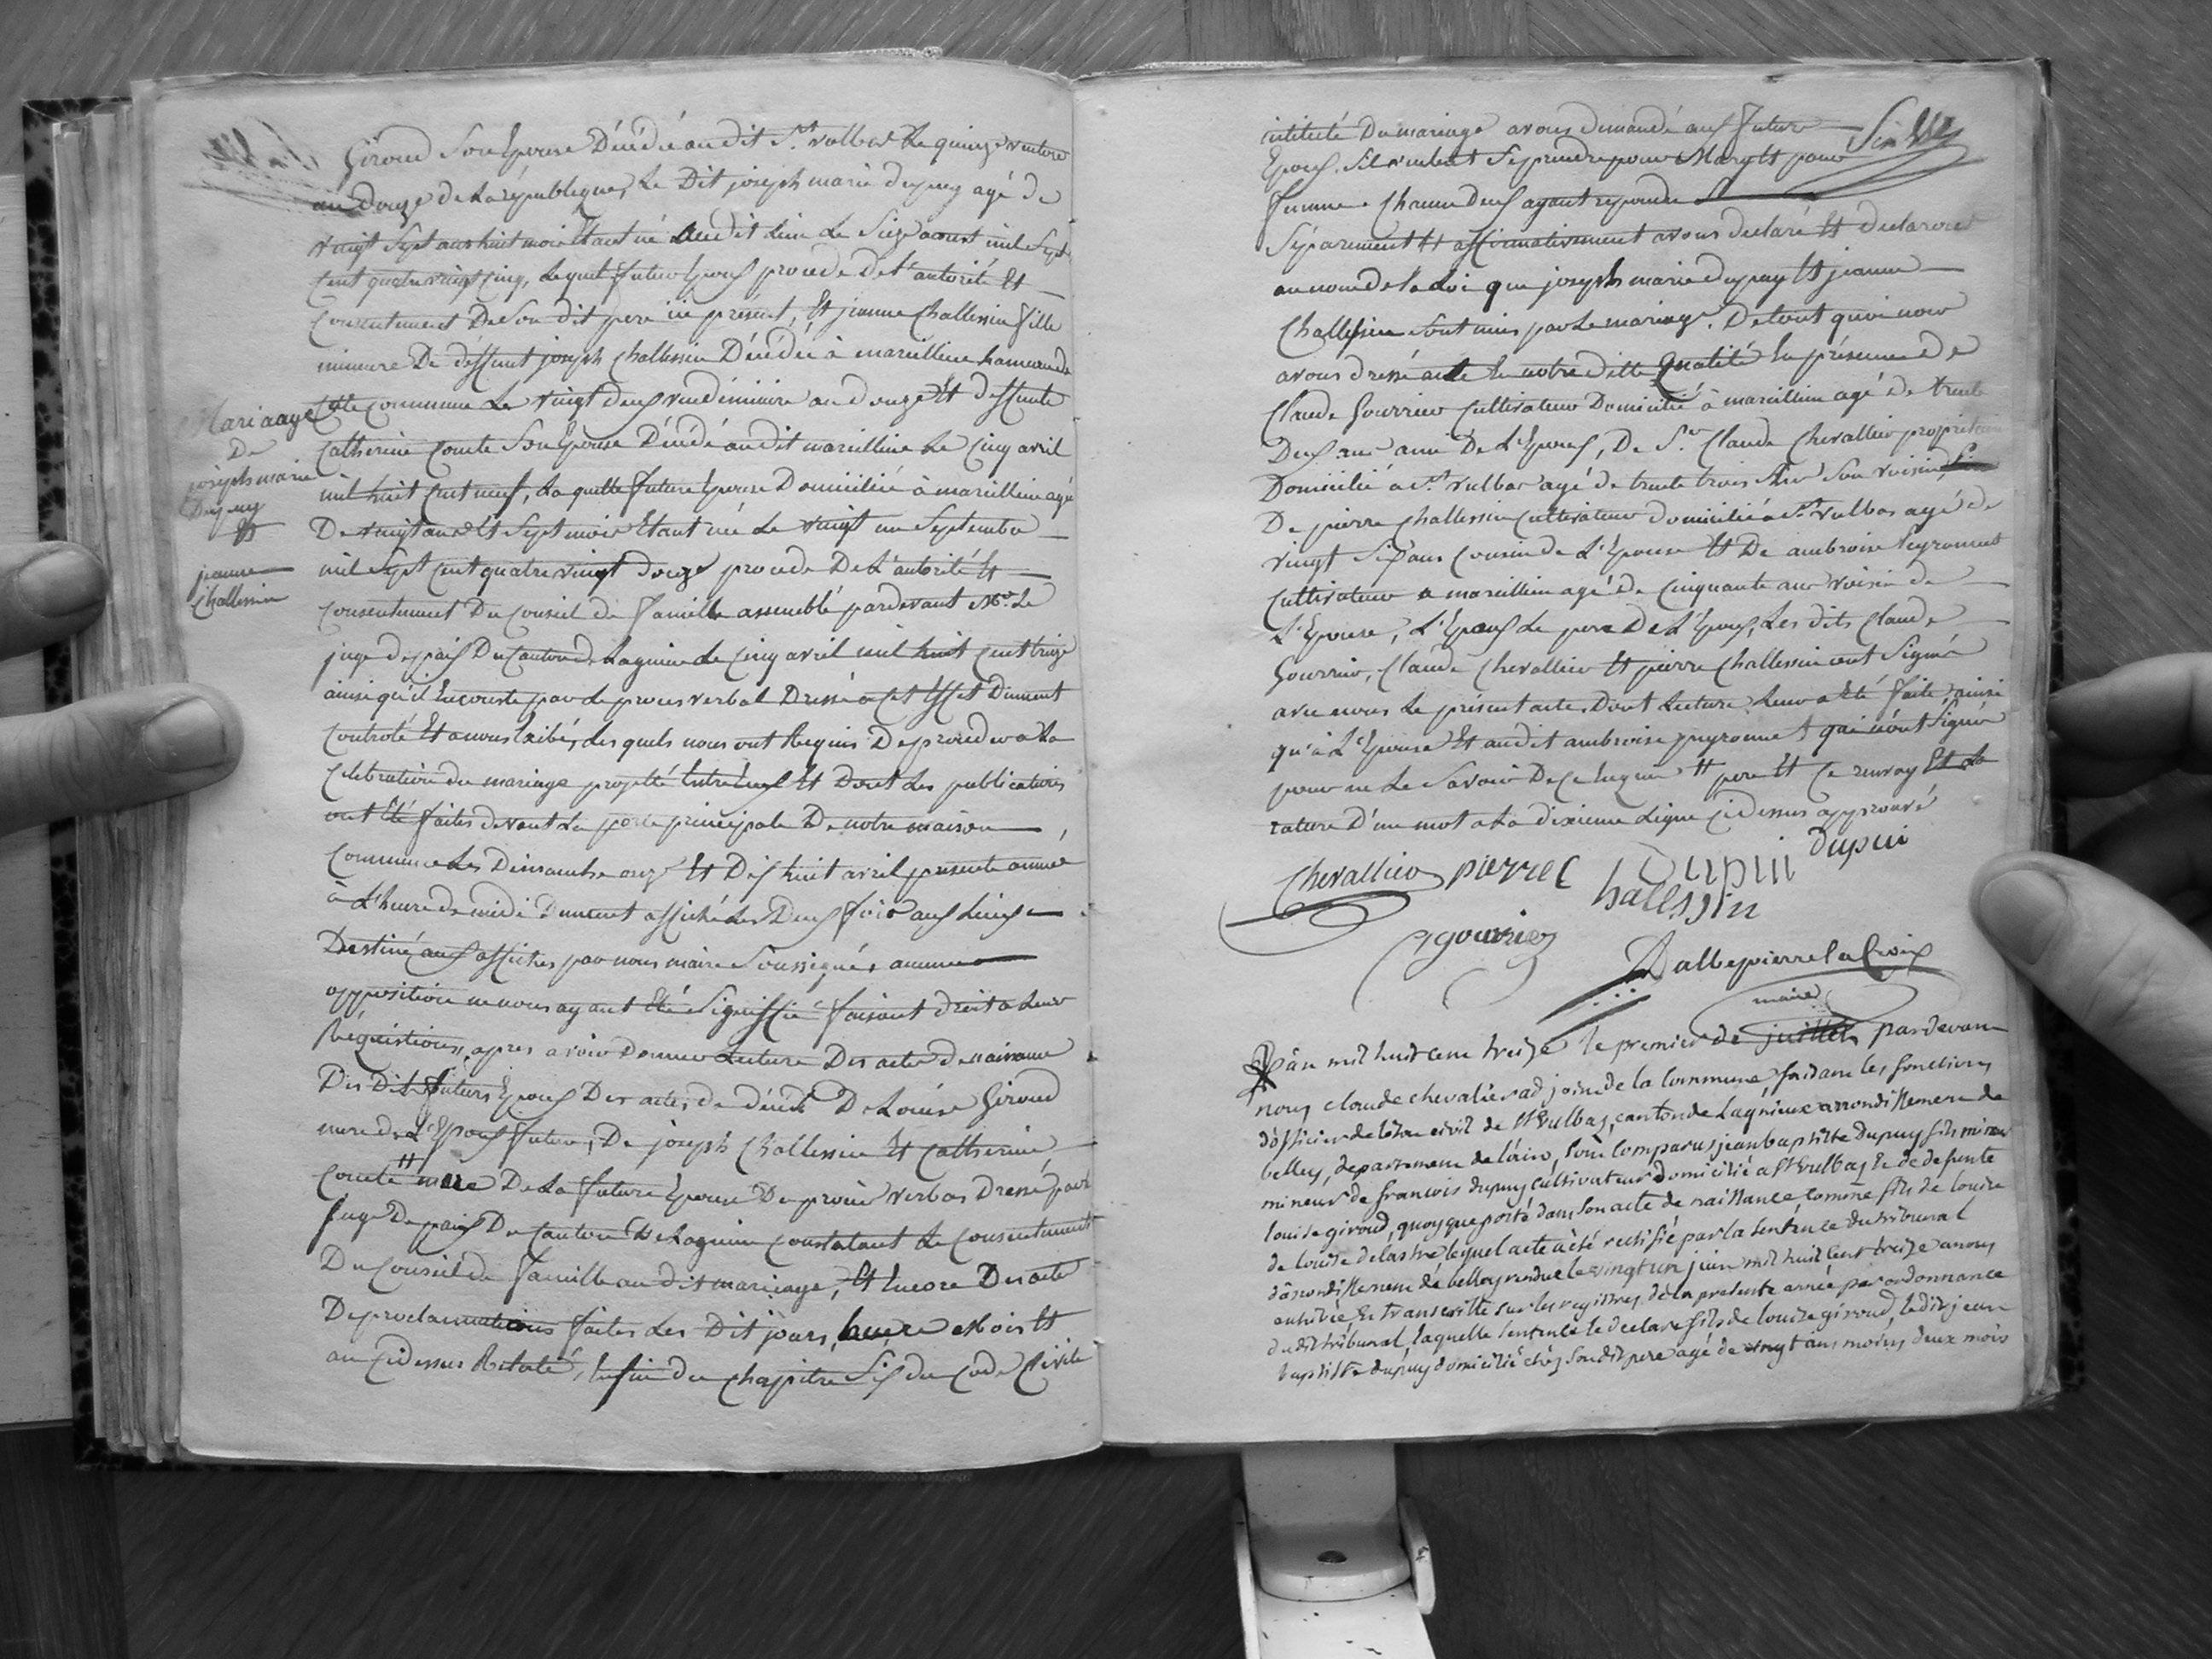 Giroud Son Epouse Décédé audit St vulbas Le quinze ventose
an douze de La république, Le Dit joseph marie dupuy agé de
vingt Sept ans huit mois Etant né audit Lieu Le Sieze aoust mil Sept
Cent quatre vingt Cinq, Lequel futur Epoux procede de L'autorité Et
Consentement De Son dit pere ici présent, Et jeanne Challessin fille
mineure De deffunt joseph Challessin Décédé à marcillieu hameau de
Mariaage
De
joseph marie
Dupuy
Et
jeanne
Challessin
Cette Commune Le vingt deux vendémiaire an douze Et deffunte
Catherine Comte Son Epouse Décédé audit marcillieu Le Cinq avril
mil huit Cent neuf, Laquelle future Epouse Domiciliée à marcillieu agé
De vingt ans Et Sept mois Etant née Le vingt un Septembre
mil Sept Cent quatre vingt douze procede De L'autorité Et
Consentement Du Conseil de famille assemblé pardevant Mr Le
juge de paix Du Canton de Lagnieu Le Cinq avril mil huit Cent treize
ainsi qu'il En conste par Le proces verbal Dressé a Cet Effet Dument
Controlé Et a nous Exibé, Les quels nous ont Requis De proceder a La
Célébration du mariage projetté Entre Eux Et Dont Les publications
ont Eté faites devant La porte principale De notre maison
Commune Les Dimanche onze Et Dix huit avril presente année
à L'heure de midi Dument affiché Les Deux fois aux Lieux
Destiné aux affiches par nous maire Soussigné, aucune
opposition ne nous ayant Eté Signiffié faisant droit a Leur
Réquisitions, apres avoir Donner Lecture Des acte de naissance
Des Dit futurs Epoux Des actes de décès De Louise Giroud
mere de L'Epoux futur, De joseph Challessin Et Catherine
Comte # mere De La future Epouse Du procès verbal Dressé par le
Juge De paix Du Canton De Lagnieu Constatant Le Consentement
Du Conseil de famille au dit mariage, Et Encore Des acte
De proclamations faites Les Dit jours, heure mois Et
an Cidessus Relaté, Enfin du Chapitre Six du Code Civile
intitulé Du mariage avons demandé aux futurs
Epoux S'il veulent Se prendre pour Mary Et pour
femme. Chacun Deux ayant repondu
Séparement Et affirmativement avons declaré Et declarons
au nom de la Loi que joseph marie dupuy Et jeanne
Challessin Sont unis par Le mariage. De tout quoi nous
avons dressé acte En notre ditte qualité En présence de
Claude Gourrier Cultivateur Domicilié à marcillieu agé de trente
Deux ans ami De L'Epoux, De Sr. Claude Chevallier propriétaire
Domicilié à St. vulbas agé de trente trois Son voisin
De pierre Challessin Cultivateur domicilié à St. vulbas agé de
vingt Six ans Cousin de L'Epouse Et De ambroise Peyronnet
Cultivateur a marcillieu agé De Cinquante ans voisin de
L'Epouse, L'Epoux Le pere De L'Epoux, Les dits Claude
Gourrier, Claude Chevallier Et pierre Challessin ont Signé
avec nous Le présent acte Dont Lecture Leur a Eté faite, ainsi
qu'à L'Epouse Et audit ambroise peyronnet qui n'ont Signé
pour ne Le Savoir De Ce Enquis # pere Et Ce renvoy Et La
rature D'un mot a La dixieme Ligne Cidessus approuvé
Chevallier pierre C hallessin Dupui dupui
gourrier
Dallepierre la Croix
maire
L'an mil huit cent treize le premier de juillet pardevant
nous claude chevalier adjoint de la Commune faisant les fonctions
d'officier de l'état civil de St Vulbas, canton de Lagnieux arrondissement de
belley, département de l'ain, sont comparus jean baptiste Dupuy fils mineur
mineur de francois dupuy cultivateur domicilié a St Vulbas Et de defunte
louise giroud, quoyque porté dans son acte de naissance comme fils de louise
de louise delastre lequel acte a été rectifié par la sentence du tribunal
d'arrondissement de belley rendue le vingt un juin mil huit cent treize a nous
exhibée, Et transcritte sur les registres de la presente année par ordonnance
dudit tribunal, laquelle sentence le declare fils de louise giroud, ledit jean
baptiste dupuy domicilié chez son dit pere agé de vingt ans moins deux mois